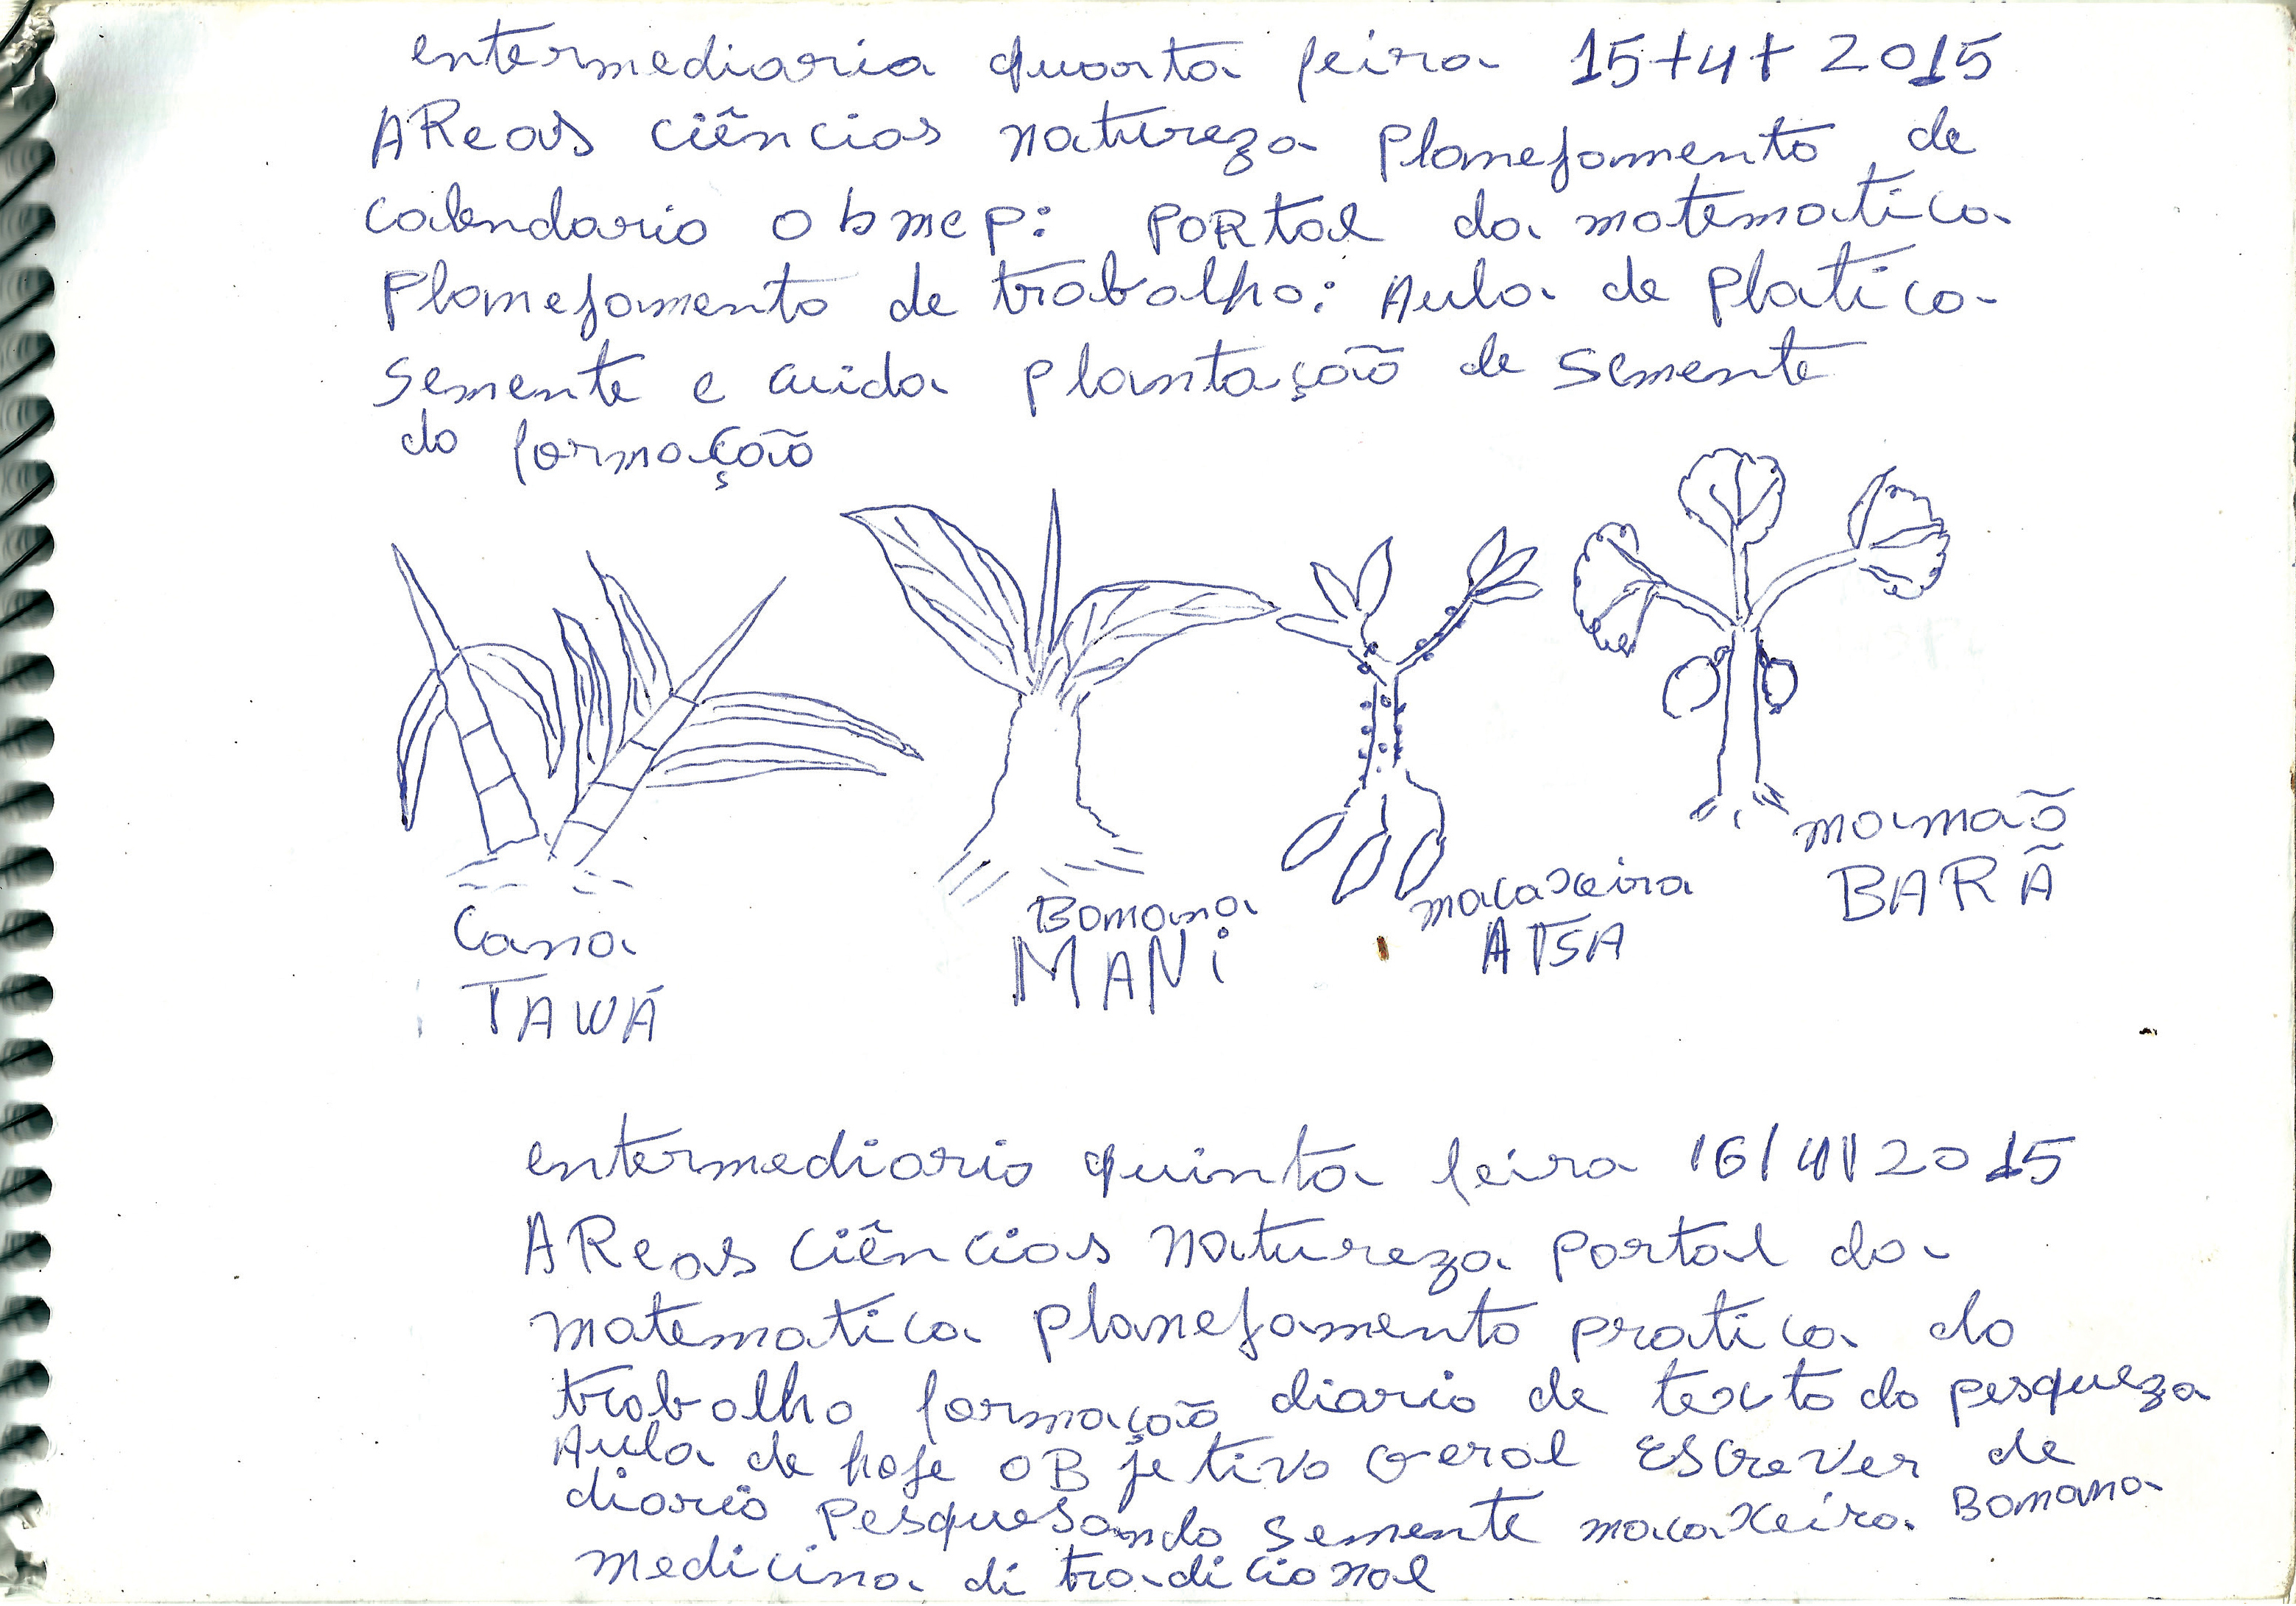 entermediaria quarta feira 15+4+2015
AReas ciências natureza planejamento de
calendario obmep: PORtal da matematica
planejamento de trabalho: Aula de platica
semente e cuida plantação de semente
do formação
cana
TAWÁ
Banana
MANi
macaxeira
ATSA
mamão
BARÃ
entermediario quinta feira 16/4/2015
AReas ciências natureza portal da
matematica planejamento pratica do
trabalho formação diario de texto do pesqueza
Aula de hoje OBjetivo Geral EScrever de
diario pesquesando semente macaxeira. Banana
medicina di tradicional